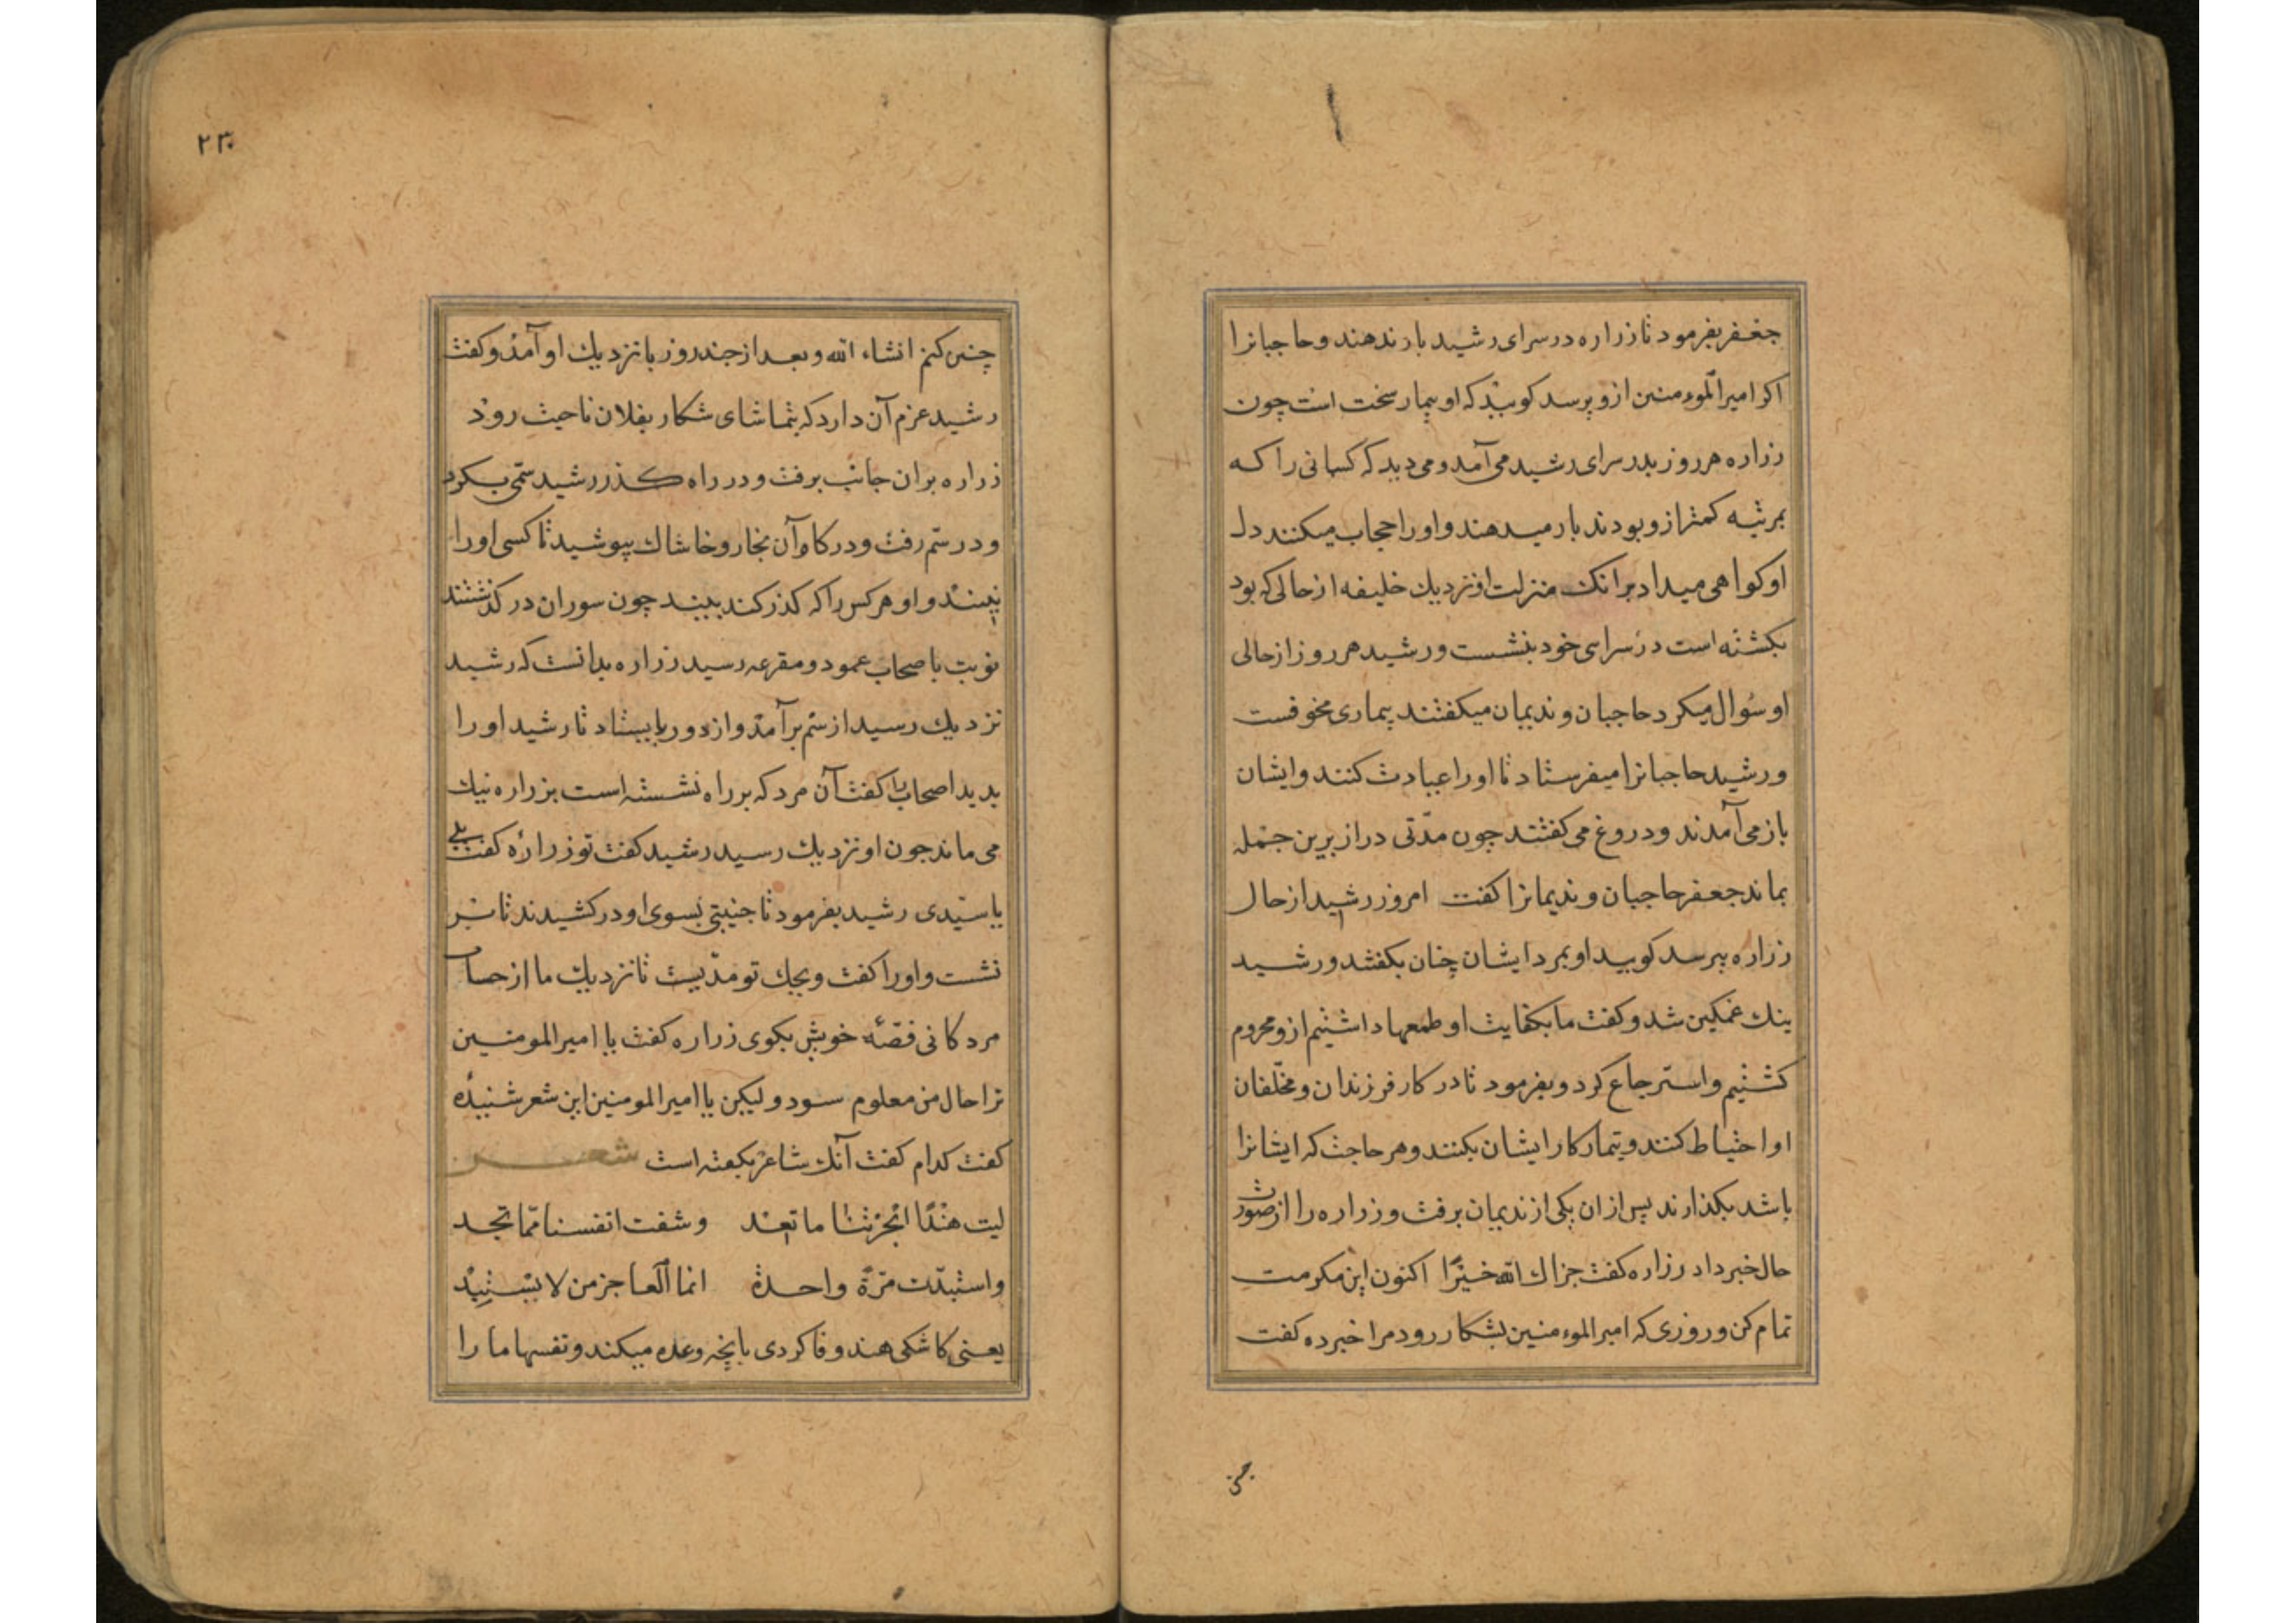 جعفر بفرمود تا زراره در سرای رشید بار ندهند و حاجبانرا
اکر امیر المومنین ازو پرسد کویند که او بیمار سخت است چون
زراره هر روز بدر سرای رشید می آمد و می دید که کسانی را که
بمرتبه کمتر ازو بودند بار میدهند و او را حجاب میکنند دل
او کواهی میداد بر انک منزلت او نزدیك خلیفه از حالی که بود
بکشته است در سرای خود بنشست و رشید هر روز از حالی
او سُوال میکرد حاجبان و ندیمان میکفتند بیماری مخوفست
و رشید حاجبانرا میفرستاد تا او را عیادت کنند و ایشان
باز می آمدند و دروغ می کفتند چون مدّتی دراز برین جمله
بماند جعفر حاجبان و ندیمانرا کفت امروز رشید از حال
زراره بپرسد کویید او بمرد ایشان چنان بکفتند و رشید
ینك غمکین شد و کفت ما بکفایت او طمعها داشتیم ازو محروم
کشتیم و استرجاع کرد و بفرمود تا در کار فرزندان و مخلّفان
او احتیاط کنند و تیمار کار ایشان بکنند و هر حاجت که ایشانرا
باشد بکذارند پس از ان یکی از ندیمان برفت و زراره را از صورت
حال خبر داد زراره کفت جزاك الله خیرًا اکنون این مکرمت
تمام کن و روزی که امیر المومنین بشکار رود مرا خبر ده کفت
چنی
۲۳۰
چنین کنم انشاء الله و بعد از چند روز بانزدیك او آمد و کفت
رشید عزم آن دارد که بتماشای شکار بفلان ناحیت رود
زراره بران جانب برفت و در راه کذر رشید ستمی بکرد
و در ستم رفت و در کاو آن بخار و خاشاك بپوشید تا کسی او را
نبیند و او هر کس را که کذر کند ببیند چون سوران در کذشتند
نوبت با صحاب عمود و مقرعه رسید زراره بدانست که رشید
نزدیك رسید از ستم بر آمد و از دور بایستاد تا رشید او را
بدید اصحاب را کفت آن مرد که بر راه نشسته است بزراره نیك
می ماند چون او نزدیك رسید رشید کفت تو زراره کفت بلی
یا سیّدی رشید بفرمود تا جنیبتی بسوی او درکشیدند تا بر
نشست و او را کفت ویحك تو مدّیست تا نزدیك ما از حساب
مردکانی قصّه خویش بکوی زراره کفت یا امیر المومنین
ترا حال من معلوم سود و لیکن یا امیر المومنین این شعر شنیدۀ
کفت کدام کفت آنك شاعر بکفته است شعر
لیت هندًا انجزتنا ما تعد و شفت انفسنا ممّا تجد
و استبدّت مرّة واحدة انما العاجز من لا یستبدّ
یعنی کاشکی هند وفا کردی بانچه وعده میکند و نفسها ما را